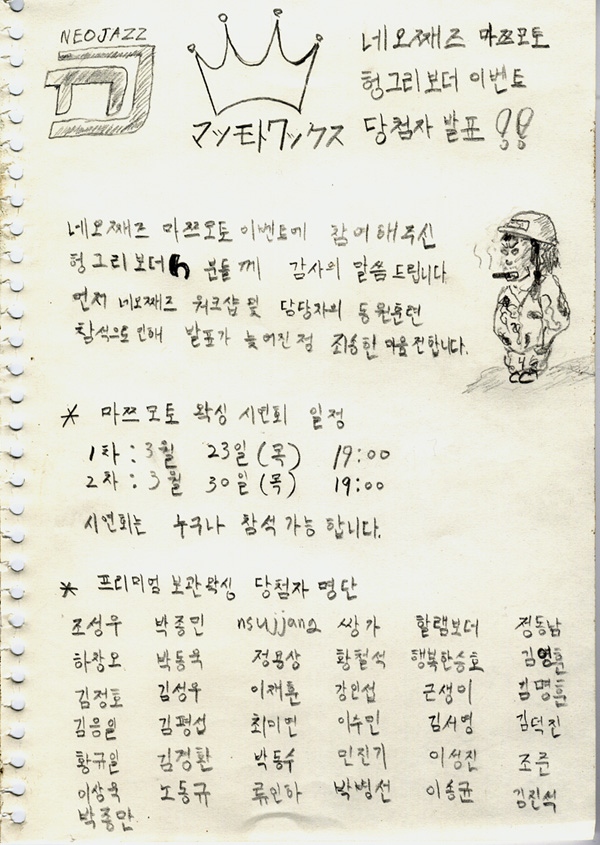 NEOJAZZ
マツモトワックス
네오째즈 마쯔모토
헝그리보더 이벤트
당첨자 발표 !!
네오째즈 마쯔모토 이벤트에 참여해주신
헝그리보더 분들께 감사의 말씀 드립니다
먼저 네오째즈 워크샵 및 담당자의 동원훈련
참석으로 인해 발표가 늦어진점 죄송한 마음 전합니다.
* 마쯔모토 왁싱 시연회 일정
1차 : 3월 23일 (목) 19:00
2차 : 3월 30일 (목) 19:00
시연회는 누구나 참석 가능 합니다.
* 프리미엄 보관왁싱 당첨자 명단
조성우 박종민 nsujjang 쌍가 할램보더 정동남
하창오 박동욱 정용상 황철석 행복한승호 김영훈
김정호 김성우 이재훈 강인섭 근생이 김명훈
김응일 김평섭 최미연 이수민 김서영 김덕진
황규일 김경환 박동수 민진기 이성진 조준
이상욱 노동규 류인하 박병선 이송균 김진석
박종만